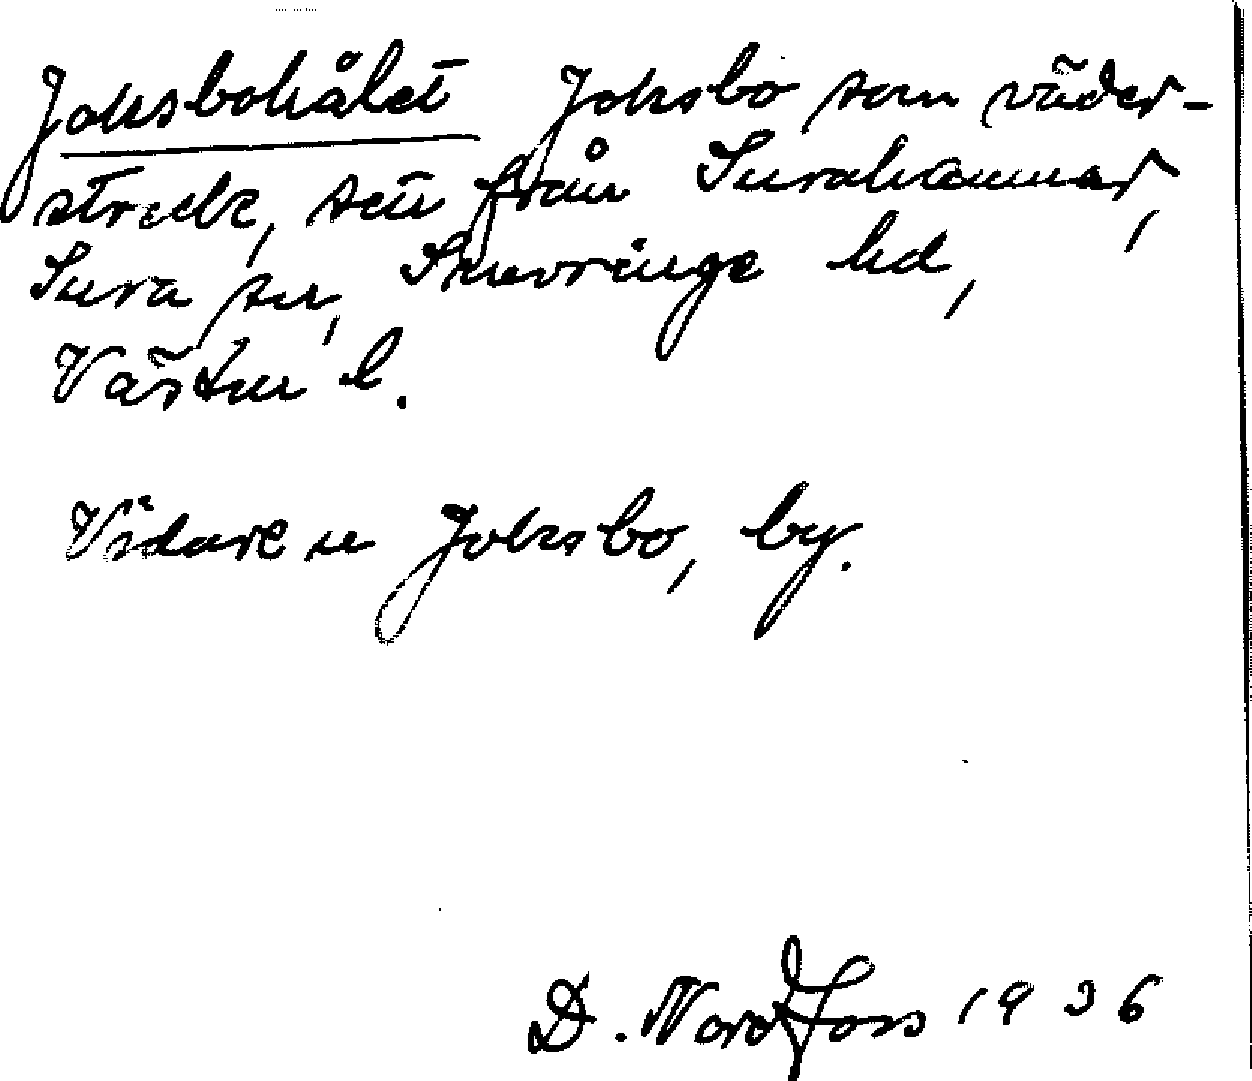 Joksbohålet Joksbo som väder-
streck, sett från Surahammar,
Sura sn, Snevringe hd,
Västm l.
Vidare se Joksbo, by.
D. Nordfors 1936